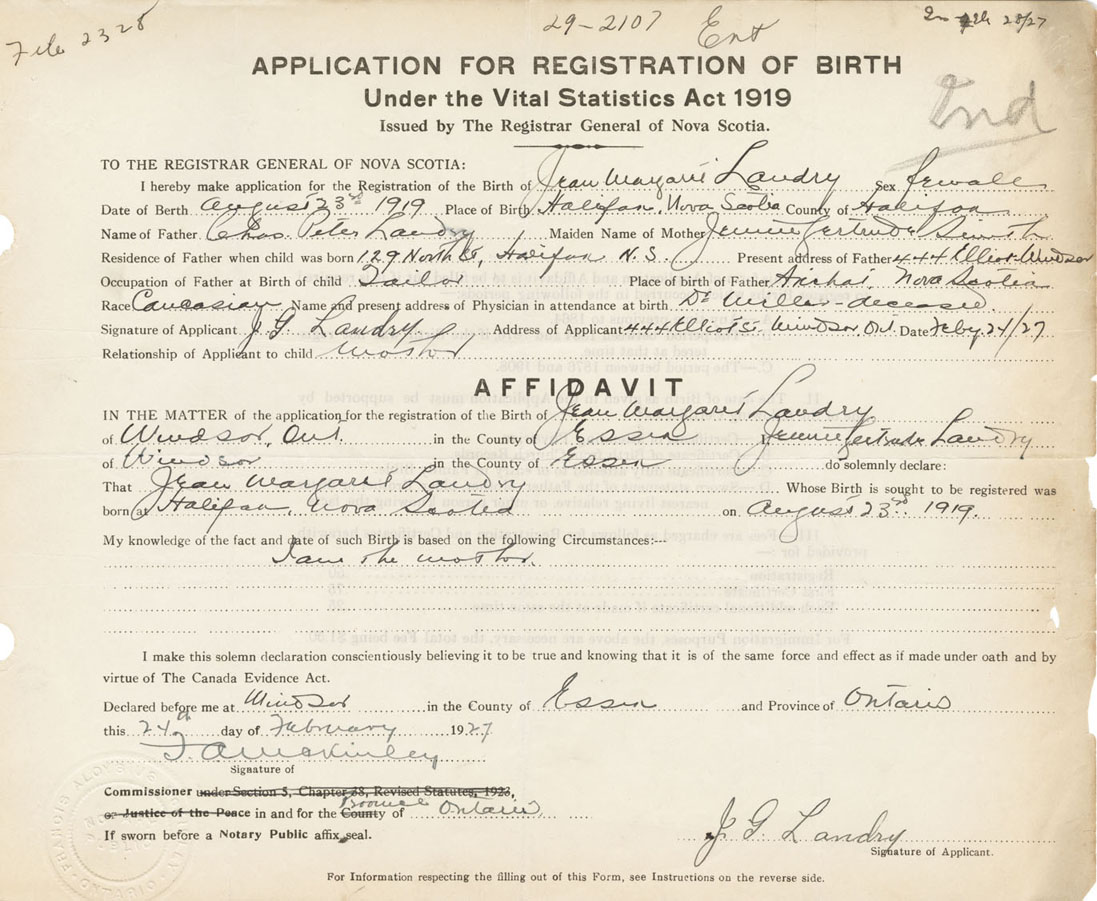 File 2328
29-2107
Ent
28/27
APPLICATION FOR REGISTRATION OF BIRTH
Under the Vital Statistics Act 1919
Ind
Issued by The Registrar General of Nova Scotia.
TO THE REGISTRAR GENERAL OF NOVA SCOTIA:
I hereby make application for the Registration of the Birth of Jean Margaret Landry Sex female
Date of Berth August 23rd 1919 Place of Birth Halifax, Nova Scotia County of Halifax
Name of Father Chas. Peter Landry Maiden Name of Mother Jennie Gertrude Smith
Residence of Father when child was born 129 North St, Halifax N.S. Present address of Father 444 Elliot Windsor
Occupation of Father at Birth of child Tailor Place of birth of Father Arichat, Nova Scotia
Race Caucasian Name and present address of Physician in attendance at birth Dr Miller - deceased
Signature of Applicant J G Landry Address of Applicant 444 Elliot St. Windsor, Ont. Date Feby 24/27
Relationship of Applicant to child Mother
AFFIDAVIT
IN THE MATTER of the application for the registration of the Birth of Jean Margaret Landry
of Windsor, Ont. in the County of Essex Jennie Gertrude Landry
of Windsor in the County of Essex do solemnly declare:
That Jean Margaret Landry Whose Birth is sought to be registered was
born at Halifax, Nova Scotia on August 23rd 1919.
My knowledge of the fact and date of such Birth is based on the following Circumstances:---
I am the mother.
I make this solemn declaration conscientiously believing it to be true and knowing that it is of the same force and effect as if made under oath and by
virtue of The Canada Evidence Act.
Declared before me at Windsor in the County of Essex and Province of Ontario
this 24th day of February 1927
F. A. McKinley
Signature of
Commissioner under Section 5, Chapter 38, Revised Statutes, 1923,
or Justice of the Peace in and for the County of Ontario
If sworn before a Notary Public affix seal.
J. G. Landry
Signature of Applicant.
For Information respecting the filling out of this Form, see Instructions on the reverse side.